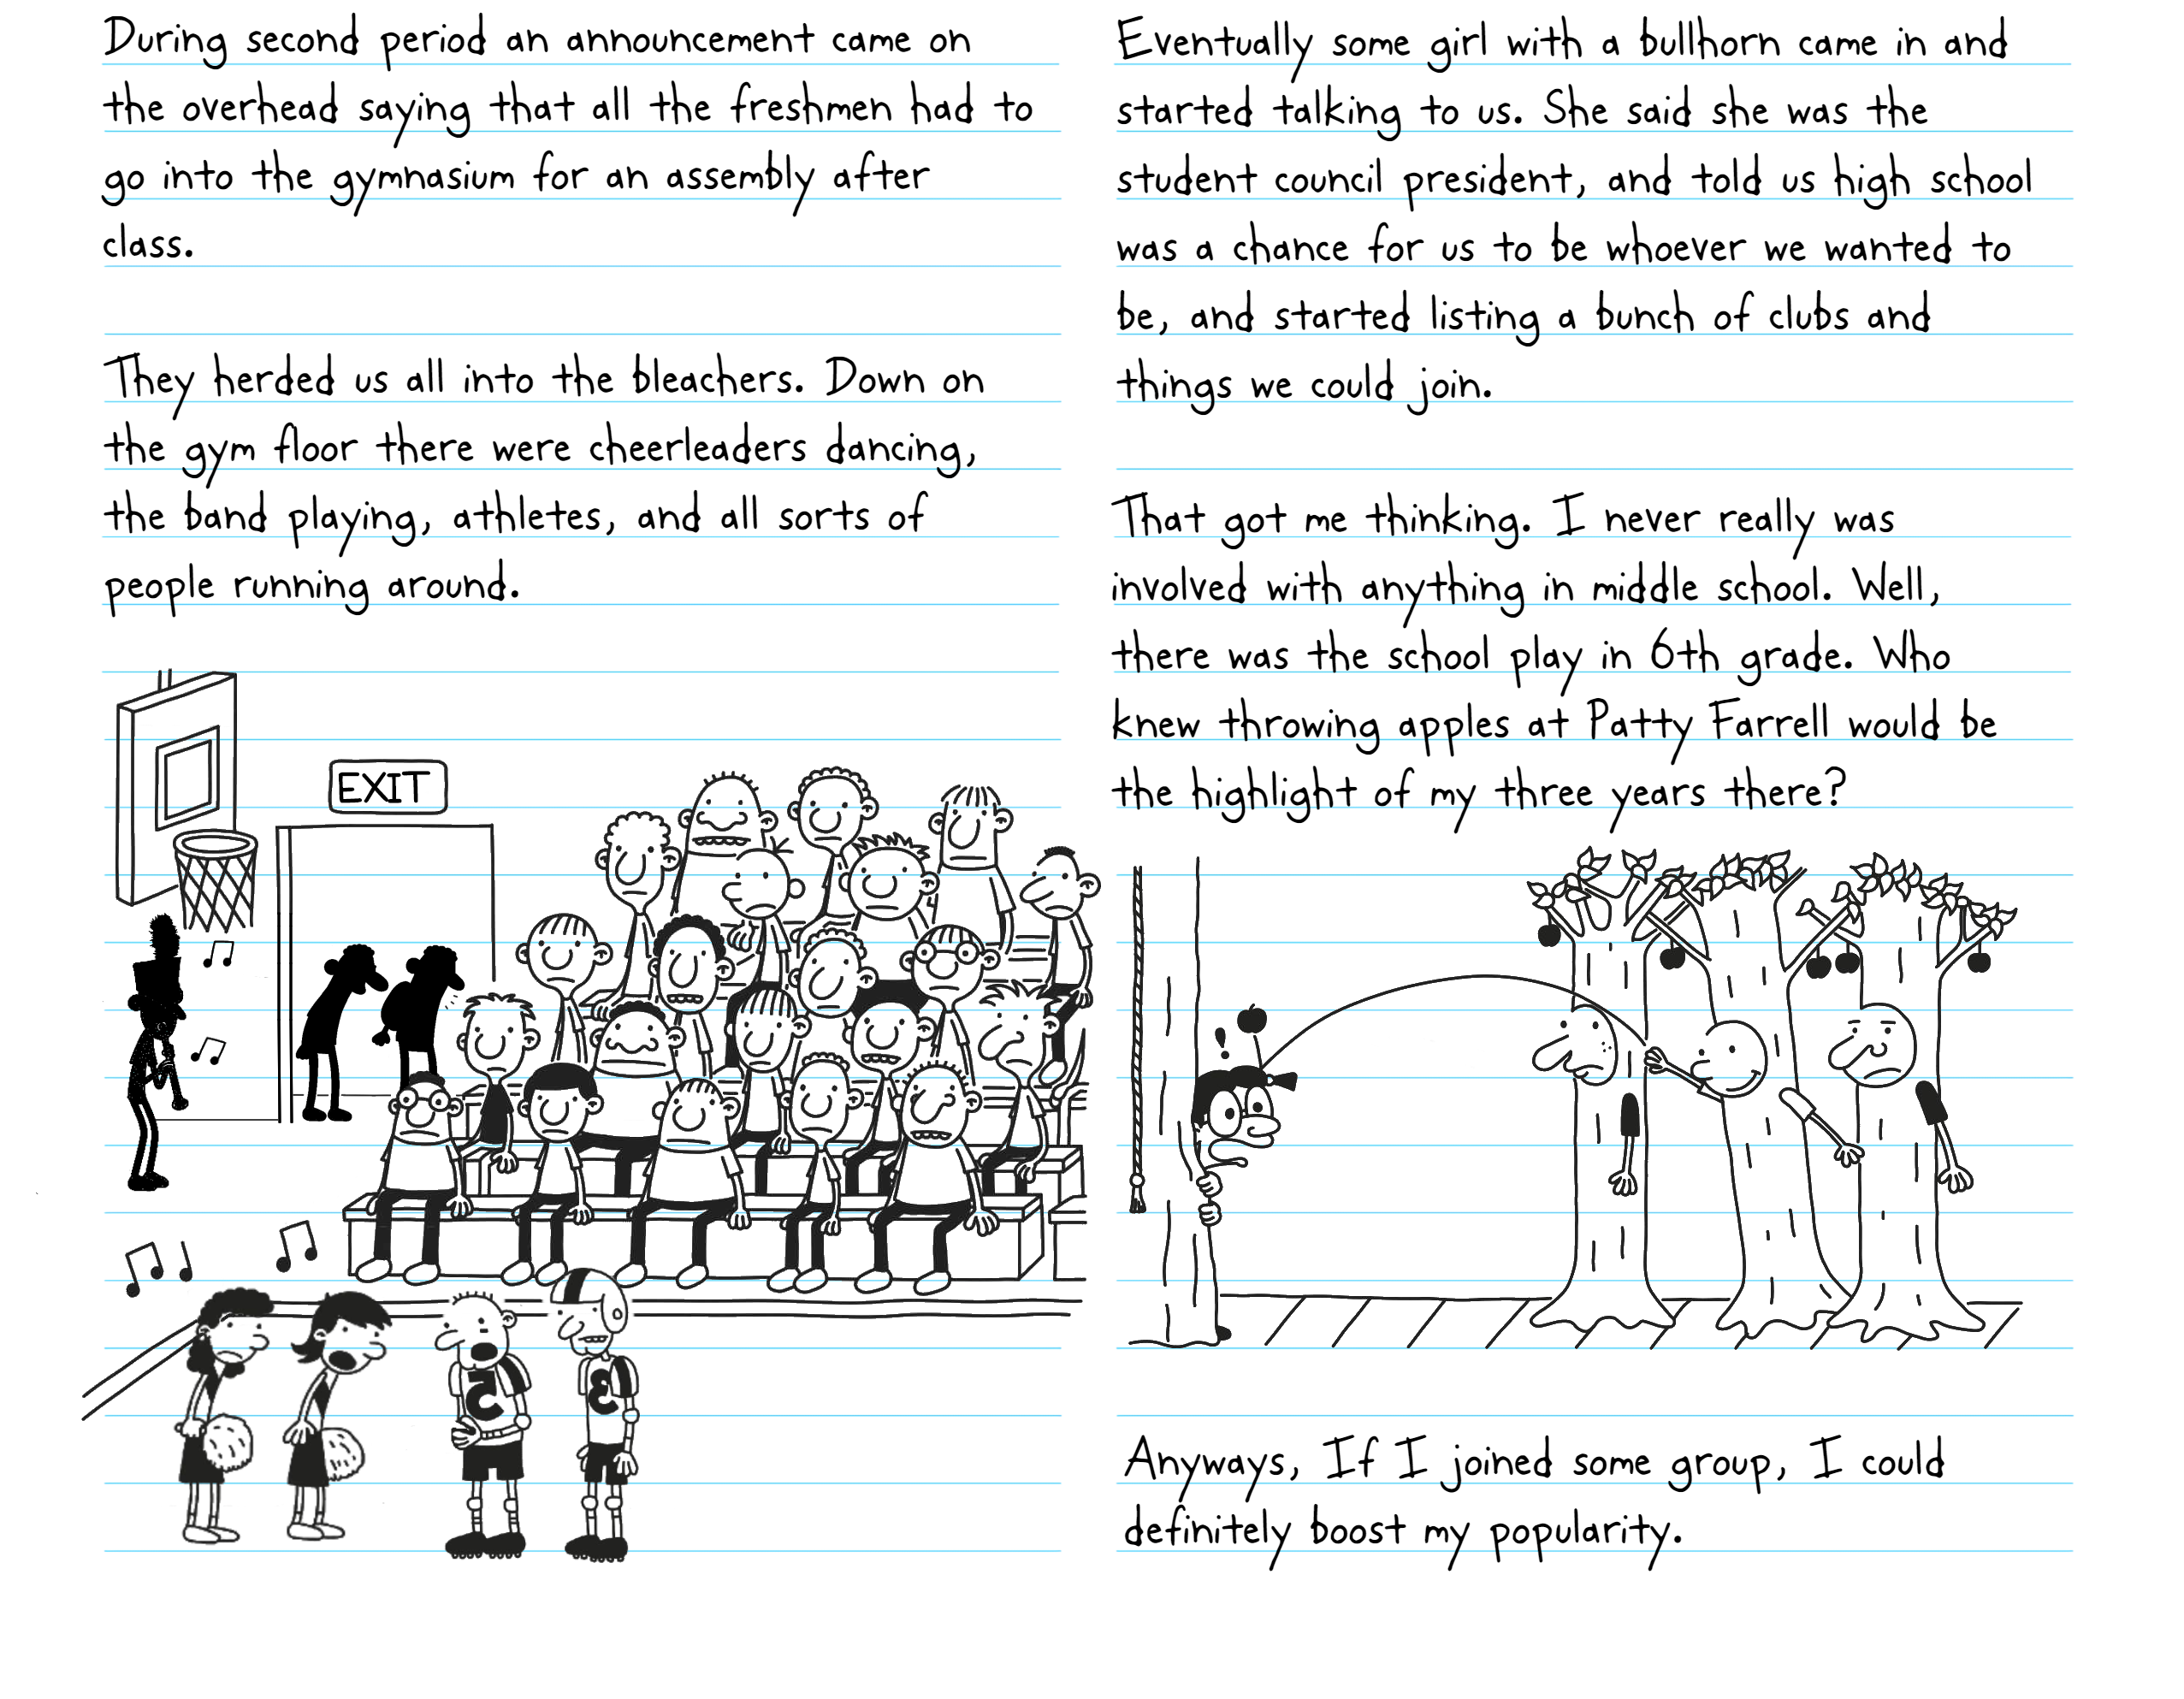 During second period an announcement came on
the overhead saying that all the freshmen had to
go into the gymnasium for an assembly after
class.
They herded us all into the bleachers. Down on
the gym floor there were cheerleaders dancing,
the band playing, athletes, and all sorts of
people running around.
EXIT
5
3
Eventually some girl with a bullhorn came in and
started talking to us. She said she was the
student council president, and told us high school
was a chance for us to be whoever we wanted to
be, and started listing a bunch of clubs and
things we could join.
That got me thinking. I never really was
involved with anything in middle school. Well,
there was the school play in 6th grade. Who
knew throwing apples at Patty Farrell would be
the highlight of my three years there?
!
Anyways, If I joined some group, I could
definitely boost my popularity.